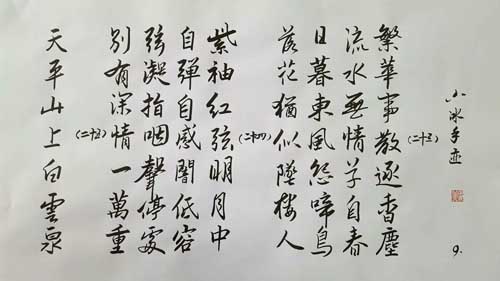 小冰手迹
9.
(二十三)
繁華事散逐香塵
流水無情草自春
日暮東風怨啼鳥
落花猶似墜樓人
(二十四)
紫袖紅弦明月中
自彈自感闇低容
弦凝指咽聲停處
別有深情一萬重
(二十五)
天平山上白雲泉